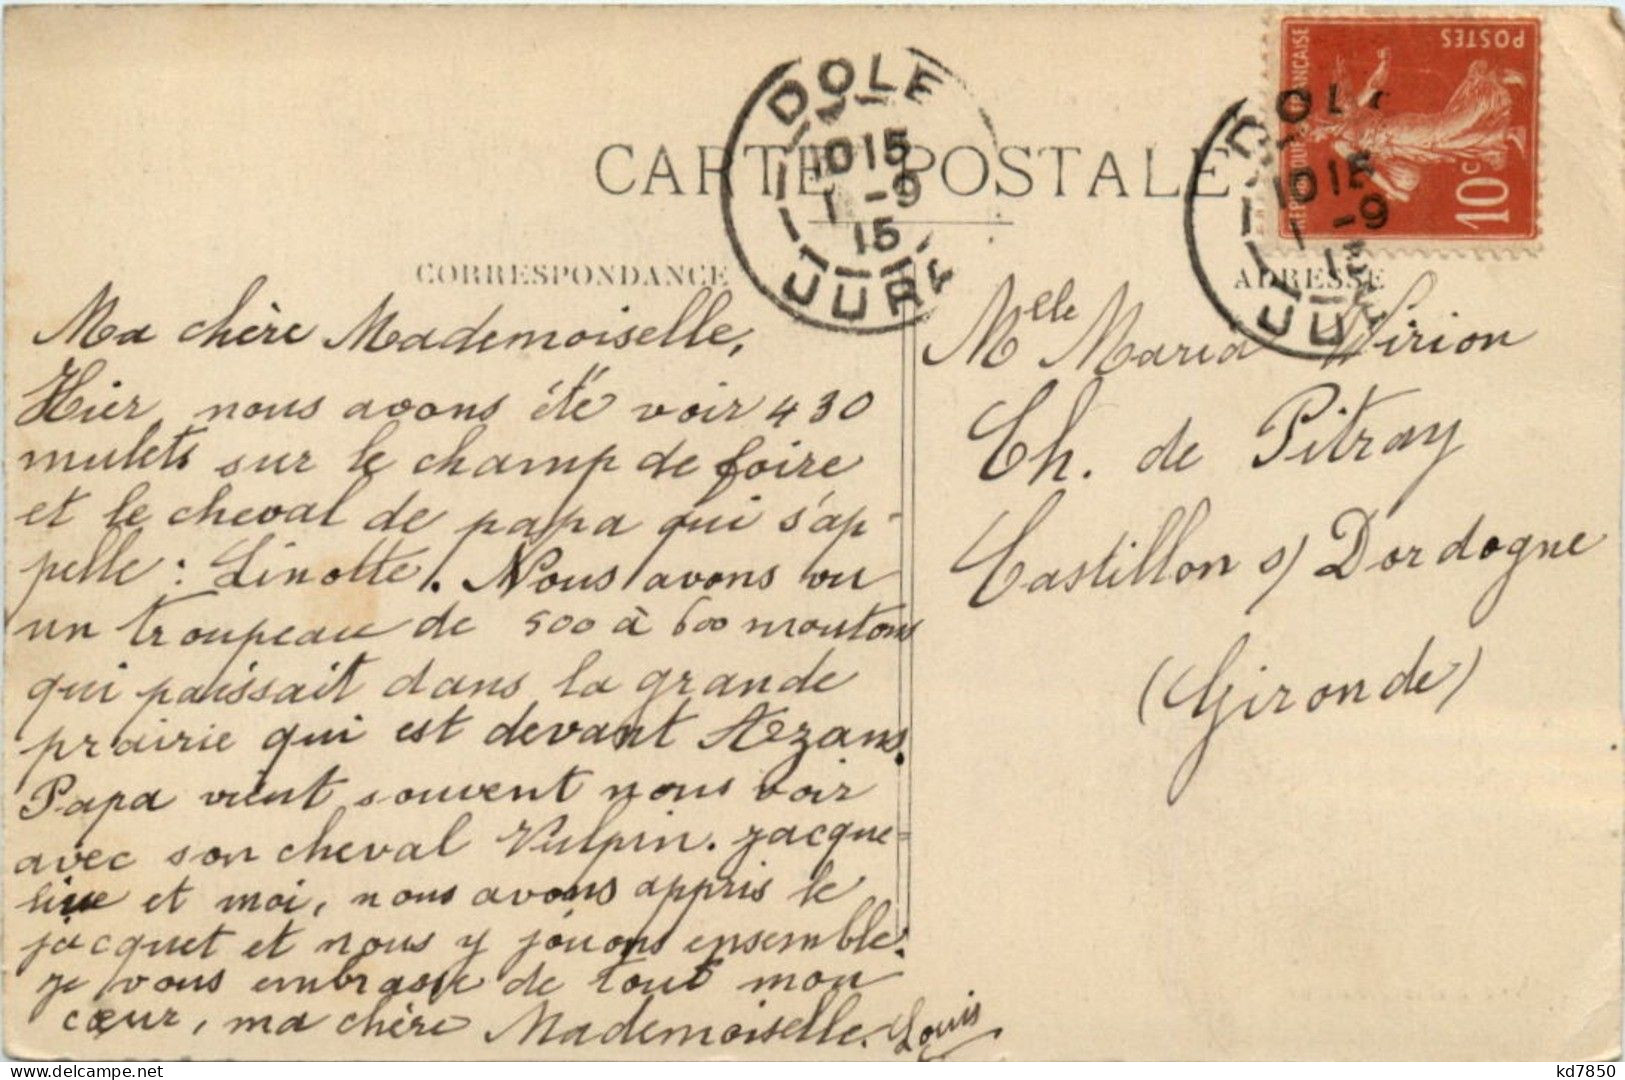 CARTE POSTALE
CORRESPONDANCE
ADRESSE
DOLE
1015
1-9
15
JURA
DOLE
1015
1-9
15
JURA
POSTES
REPUBLIQUE FRANÇAISE
10c
Ma chère Mademoiselle,
Hier nous avons été voir 430
mulets sur le champ de foire
et le cheval de papa qui s'ap-
pelle : Linotte. Nous avons vu
un troupeau de 500 à 600 moutons
qui paissait dans la grande
prairie qui est devant Azans.
Papa vient souvent nous voir
avec son cheval Vulpin. Jacque-
line et moi, nous avons appris le
jacquet et nous y jouons ensemble.
Je vous embrasse de tout mon
cœur, ma chère Mademoiselle. Louis
Mlle Maria Virion
Ch. de Pitray
Castillon s/ Dordogne
(Gironde)
delcampe.net
kd7850